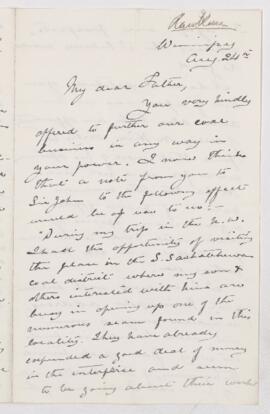 Winnipeg
Aug. 24th
My dear Father,
You very kindly
offered to further our coal
business in any way in
your power. I now think
that a note from you to
Sir John to the following effect
would be of use to us:—
"During my trip in the N.W.
I had the opportunity of visiting
the place in the S. Saskatchewan
coal district where my son &
others interested with him are
busy in opening up one of the
numerous seams found in this
locality. They have already
expended a good deal of money
in the enterprise and seem
to be going about their work